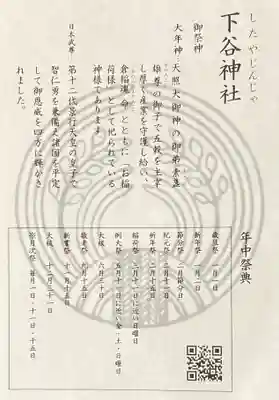 したやじんじゃ
下谷神社
御祭神
大年神 天照大御神の御弟素盞
雄尊の御子で五穀を主宰
し厚く産業を守護し給い、
倉稲魂命とともに「お稲
荷様」として祀られている
神様であります
日本武尊
第十二代景行天皇の皇子で
智仁勇を兼備え諸国を平定
して御恩威を四方に輝かさ
れました。
年中祭典
歳旦祭 一月一日
新年祭 一月二日
節分祭 二月節分日
紀元祭 二月十一日
祈年祭 二月十五日
稲荷祭 三月十日に近い日曜日
例大祭 五月十一日に近い金・土・日曜日
大祓 六月三十日
敬老祭 九月十五日
新嘗祭 十一月十五日
大祓 十二月三十一日
毎月次祭 毎月一日・十一日・十五日